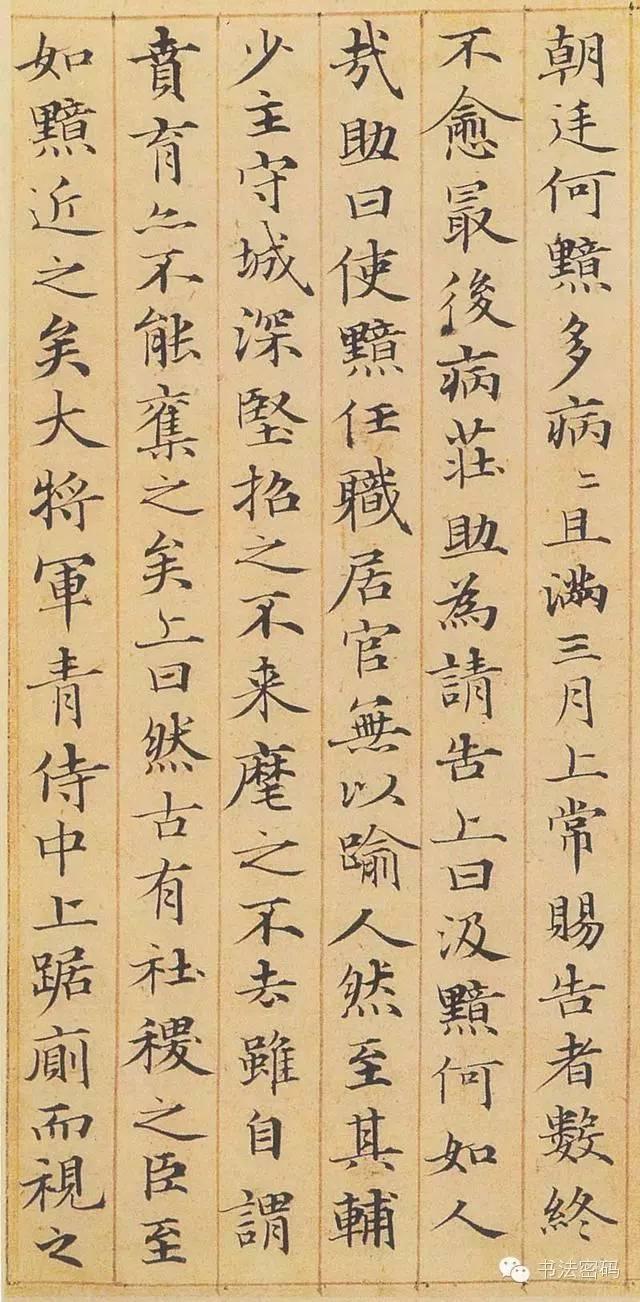 朝廷何黯多病〻且滿三月上常賜告者數終
不愈最後病莊助為請告上曰汲黯何如人
㦲助曰使黯任職居官無以踰人然至其輔
少主守城深堅招之不来麾之不去雖自謂
賁育亦不能奪之矣上曰然古有社稷之臣至
如黯近之矣大將軍青侍中上踞廁而視之
书法密码